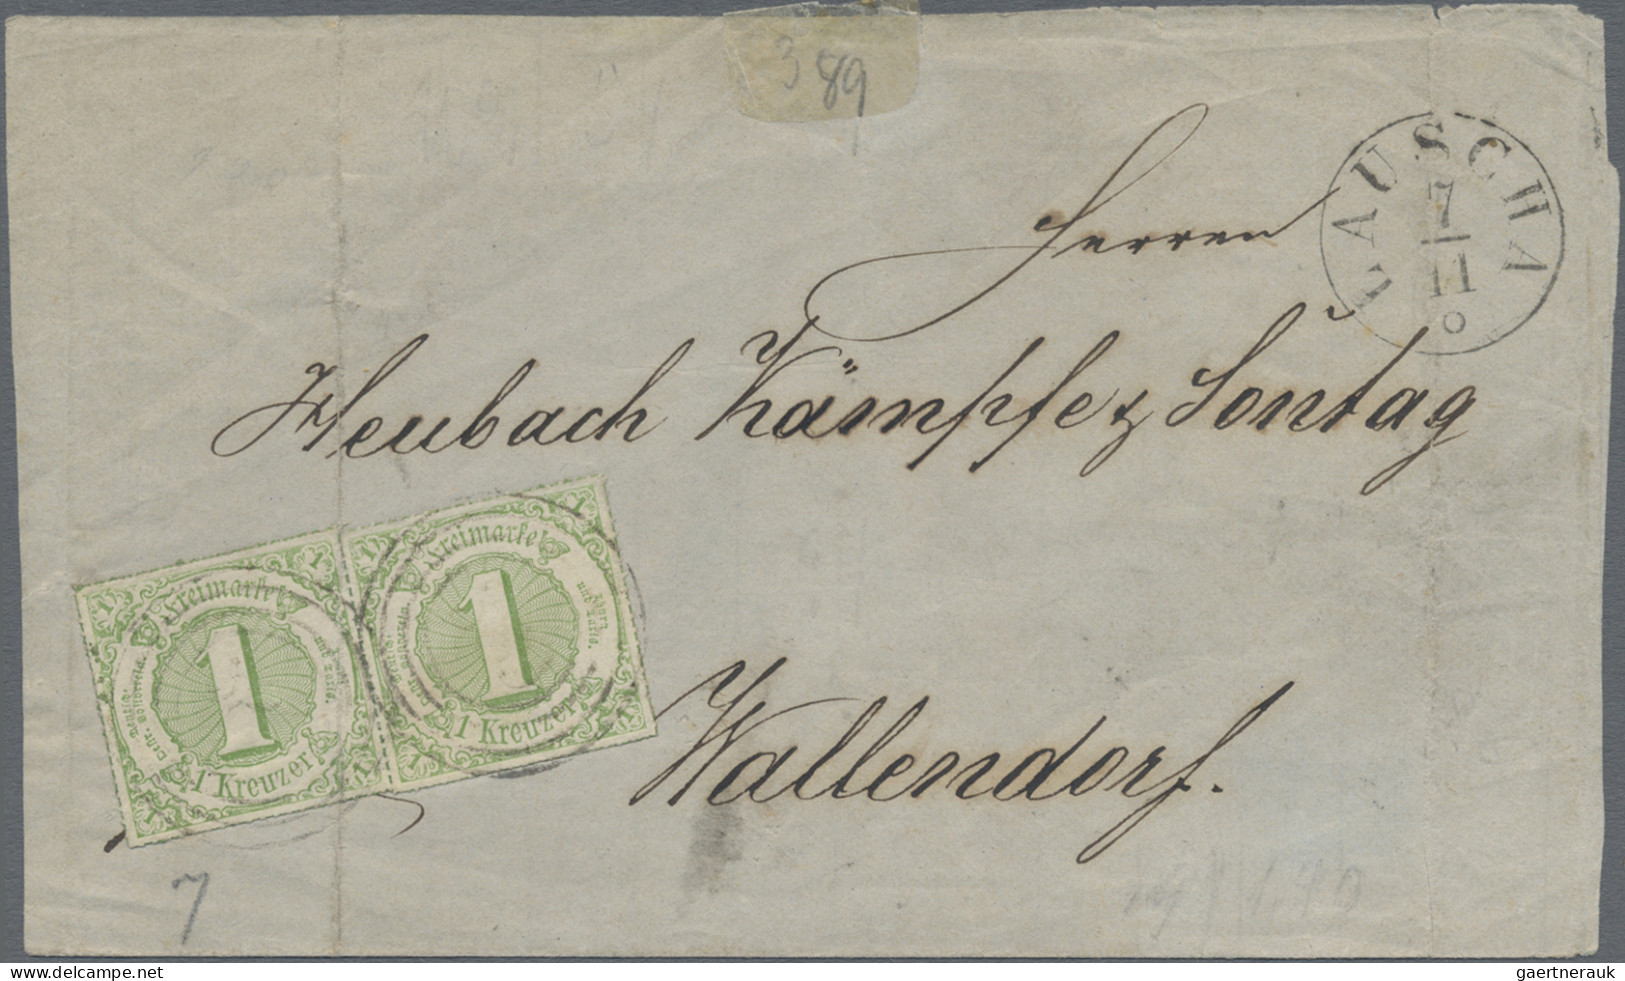 3 89
LAUSCHA
7
11
Herren
Heubach Kämpfe & Sontag
Wallendorf.
1 1
Freimarke
1
1 Kreuzer
1 1
Freimarke
1
1 Kreuzer
7
delcampe.net
gaertnerauk